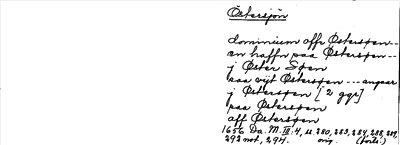 Östersjön
dominium offr Østersøen --
en haffn paa Østersøen --
j Øster Søen
saa vijt Østersøen --- angaar
j Østersøen [2 ggr]
paa Østersøen
aff Østersøen
1656 Da. M. III:4, u. 280, 283, 284, 288, 289,
292 not, 294. orig. (forts.)